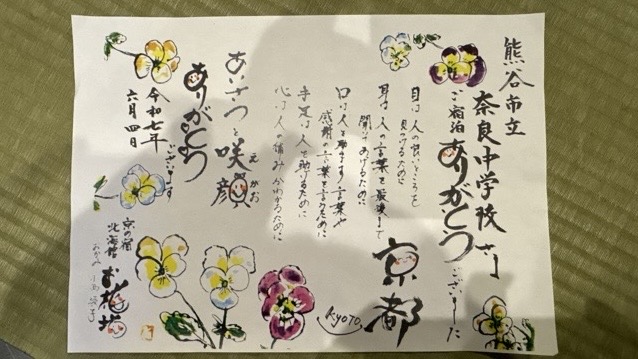 熊谷市立
奈良中学校さま
ご宿泊ありがとうございました
目は人の良いところを
見つけるために
耳は人の言葉を最後まで
聞いてあげるために
口は人を励ます言葉や
感謝の言葉を言うために
手足は人を助けるために
心は人の痛みがわかるために
京都
Kyoto
あいさつと咲顔
えがお
ありがとう
ございます
令和七年
六月四日
京の宿
北海館
お花坊
おかみ